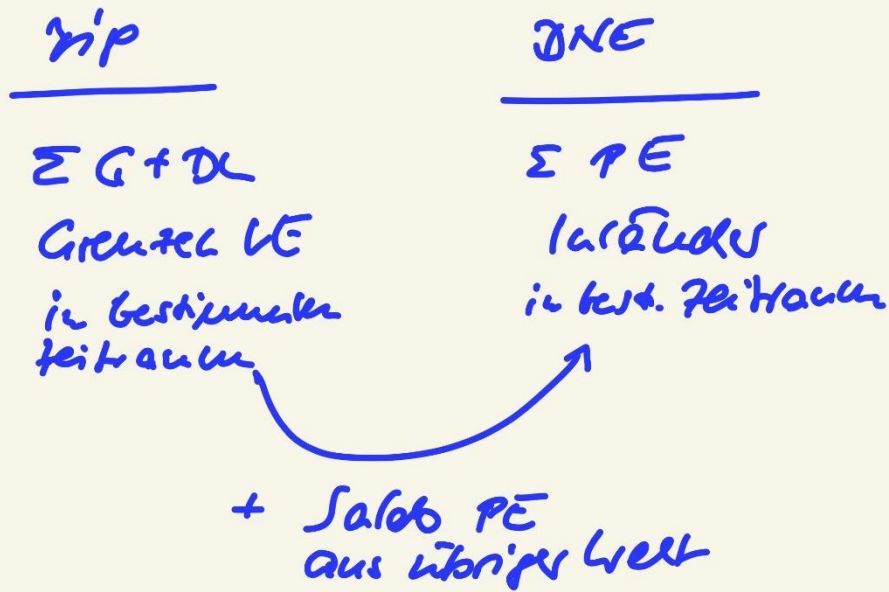 BIP
Σ G + DL
Grenzen VE
in bestimmten
Zeitraum
BNE
Σ PE
Inländer
in best. Zeitraum
+ Saldo PE
aus übriger Welt